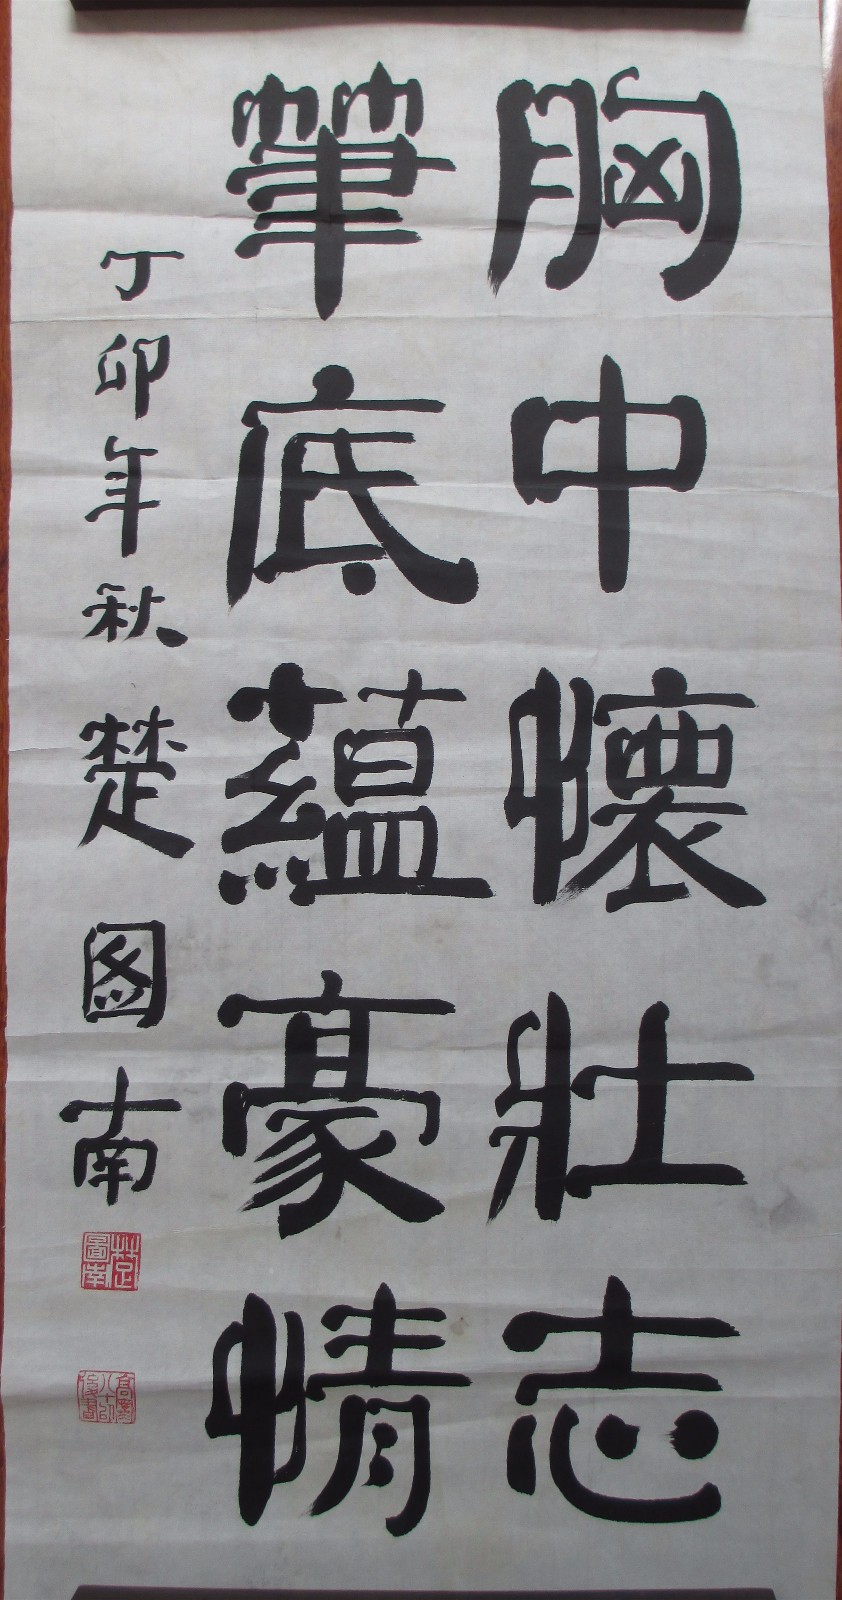 胸中懷壯志
筆底蘊豪情
丁卯年秋 楚图南
楚圖南